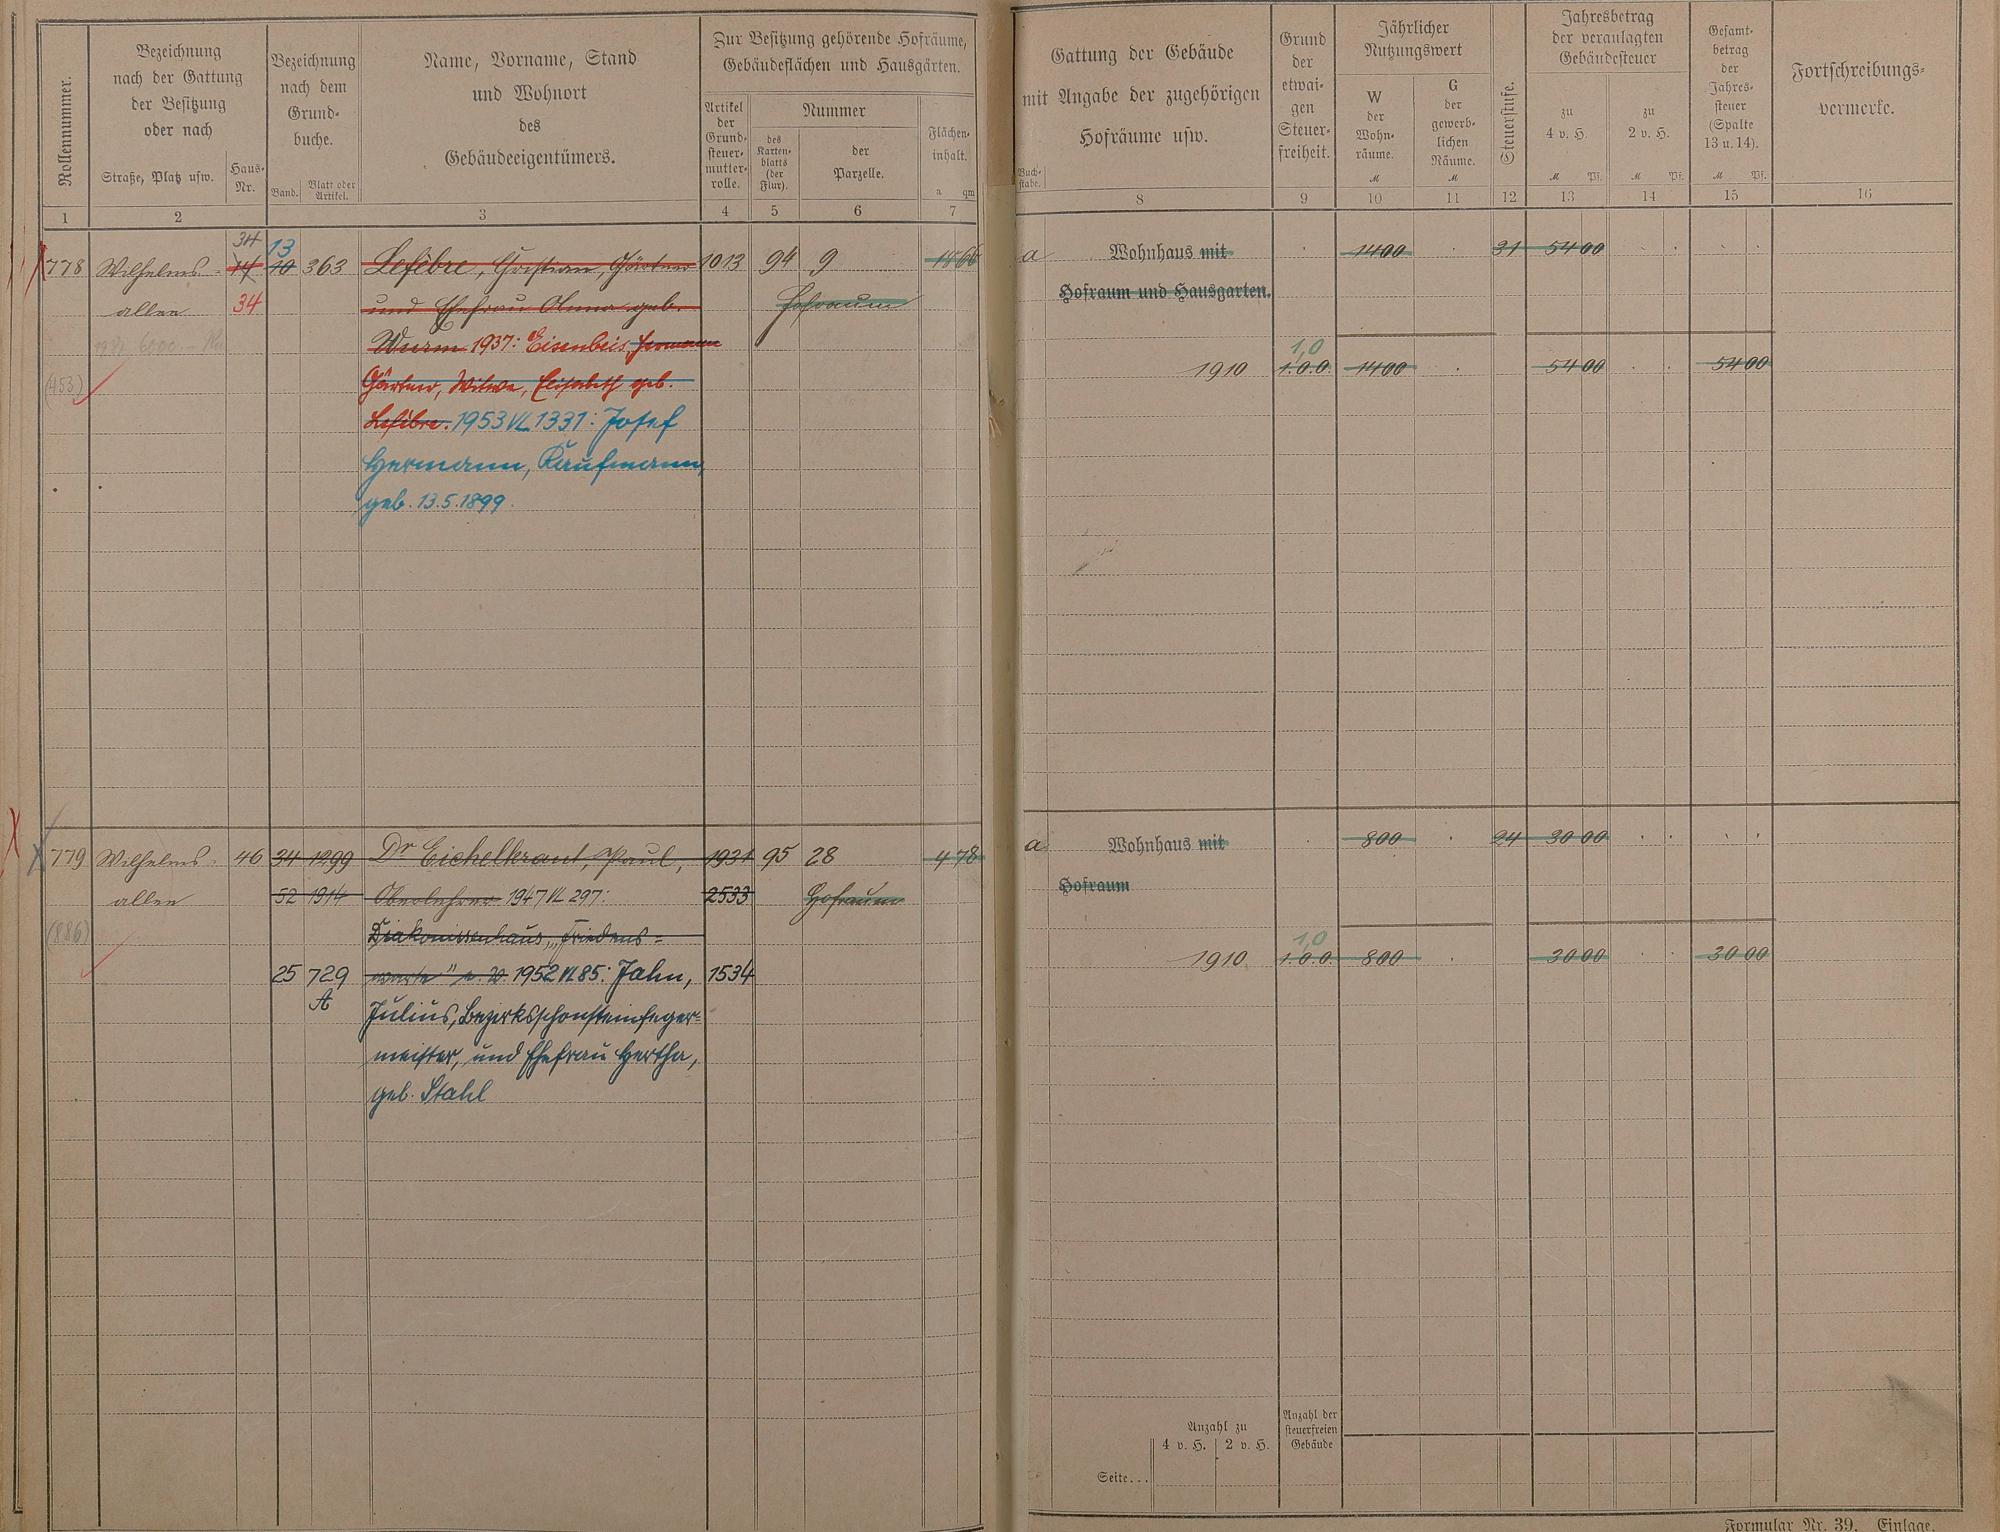 Rollennummer.
Bezeichnung
nach der Gattung
der Besitzung
oder nach
Straße, Platz usw.
Haus-
Nr.
Bezeichnung
nach dem
Grund-
buche.
Band.
Blatt oder
Artikel.
Name, Vorname, Stand
und Wohnort
des
Gebäudeeigentümers.
Zur Besitzung gehörende Hofräume,
Gebäudeflächen und Hausgärten.
Artikel
der
Grund-
steuer-
mutter-
rolle.
Nummer
des
Karten-
blatts
(der
Flur).
der
Parzelle.
Flächen-
inhalt.
a qm
1 2 3 4 5 6 7
34 13
778 Wilhelms- 14 10 363 Lefèbre, Christian, Gärtner 1013 94 9 18 66
allee 34 und Ehefrau Anna geb. Hofraum
Wurm 1937: Eisenbeis, Hermann
(453) Gärtner, Witwe, Elisabeth geb.
Lefèbre. 1953 VL 1331: Josef
Hermann, Kaufmann,
geb. 13.5.1899.
779 Wilhelms- 46 34 1299 Dr Eichelkraut, Paul, 1931 95 28 4 78
allee 52 1914 Oberlehrer 1947 VL 297: 2533 Hofraum
(886) Diakonissenhaus, „Friedens-
25 729 warte" e. V. 1952 VL 85: Jahn, 1534
A Julius, Bezirksschornsteinfeger-
meister, und Ehefrau Hertha,
geb. Stahl
Gattung der Gebäude
mit Angabe der zugehörigen
Hofräume usw.
Buch-
stabe.
Grund
der
etwai-
gen
Steuer-
freiheit.
Jährlicher
Nutzungswert
W
der
Wohn-
räume.
M
G
der
gewerb-
lichen
Räume.
M
Steuerstufe.
Jahresbetrag
der veranlagten
Gebäudesteuer
zu
4 v. H.
M Pf.
zu
2 v. H.
M Pf.
Gesamt-
betrag
der
Jahres-
steuer
(Spalte
13 u. 14).
M Pf.
Fortschreibungs-
vermerke.
8 9 10 11 12 13 14 15 16
a Wohnhaus mit 1400 31 54 00
Hofraum und Hausgarten.
1,0
1910 1.0.0. 1400 54 00 54 00
a Wohnhaus mit 800 24 30 00
Hofraum
1,0
1910 1.0.0. 800 30 00 30 00
Anzahl zu
4 v. H. 2 v. H.
Anzahl der
steuerfreien
Gebäude
Seite...
Formular Nr. 39. Einlage.